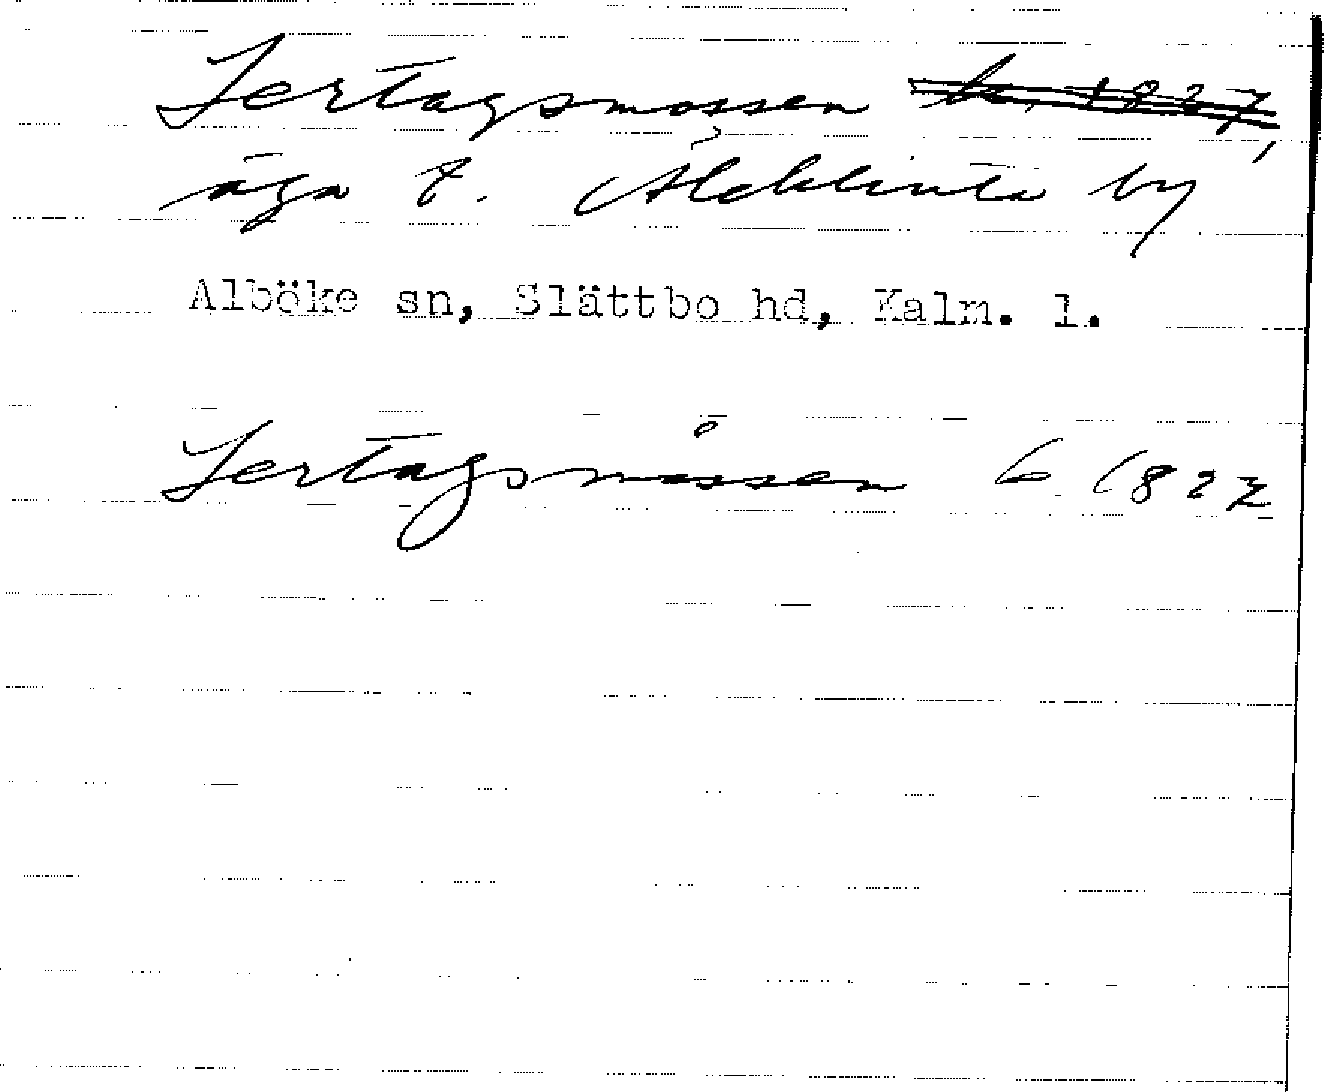 Jertagsmossen k. 1827,
äga t. Åleklinta by
Alböke sn, Slättbo hd, Kalm. l.
Jertagsmåssen k 1827